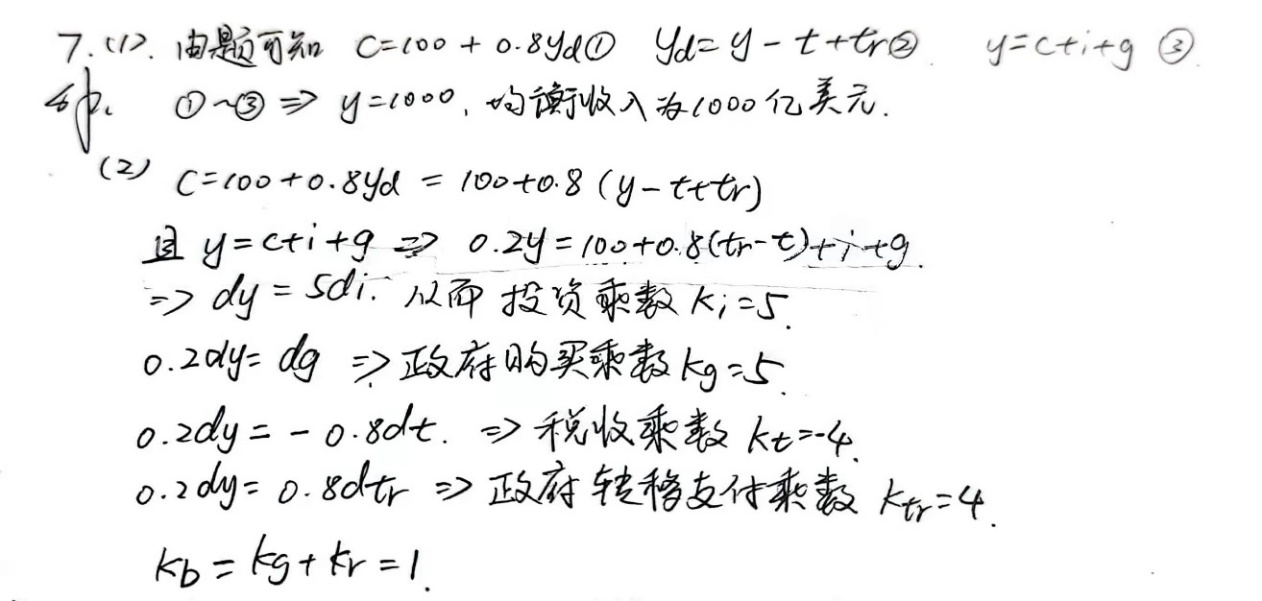 7.(1). 由题可知 C=100+0.8yd① yd=y-t+tr② y=c+i+g ③
①~③ => y=1000, 均衡收入为1000亿美元.
(2) C=100+0.8yd = 100+0.8(y-t+tr)
且 y=c+i+g => 0.2y=100+0.8(tr-t)+i+g.
=> dy=5di. 从而 投资乘数 ki=5.
0.2dy=dg => 政府购买乘数 kg=5.
0.2dy=-0.8dt. => 税收乘数 kt=-4.
0.2dy=0.8dtr => 政府转移支付乘数 ktr=4.
kb=kg+kr=1.